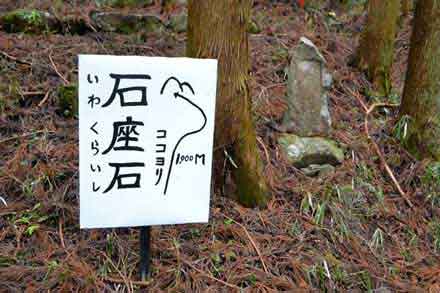 石座石
いわくらいし
ココヨリ
1,000M